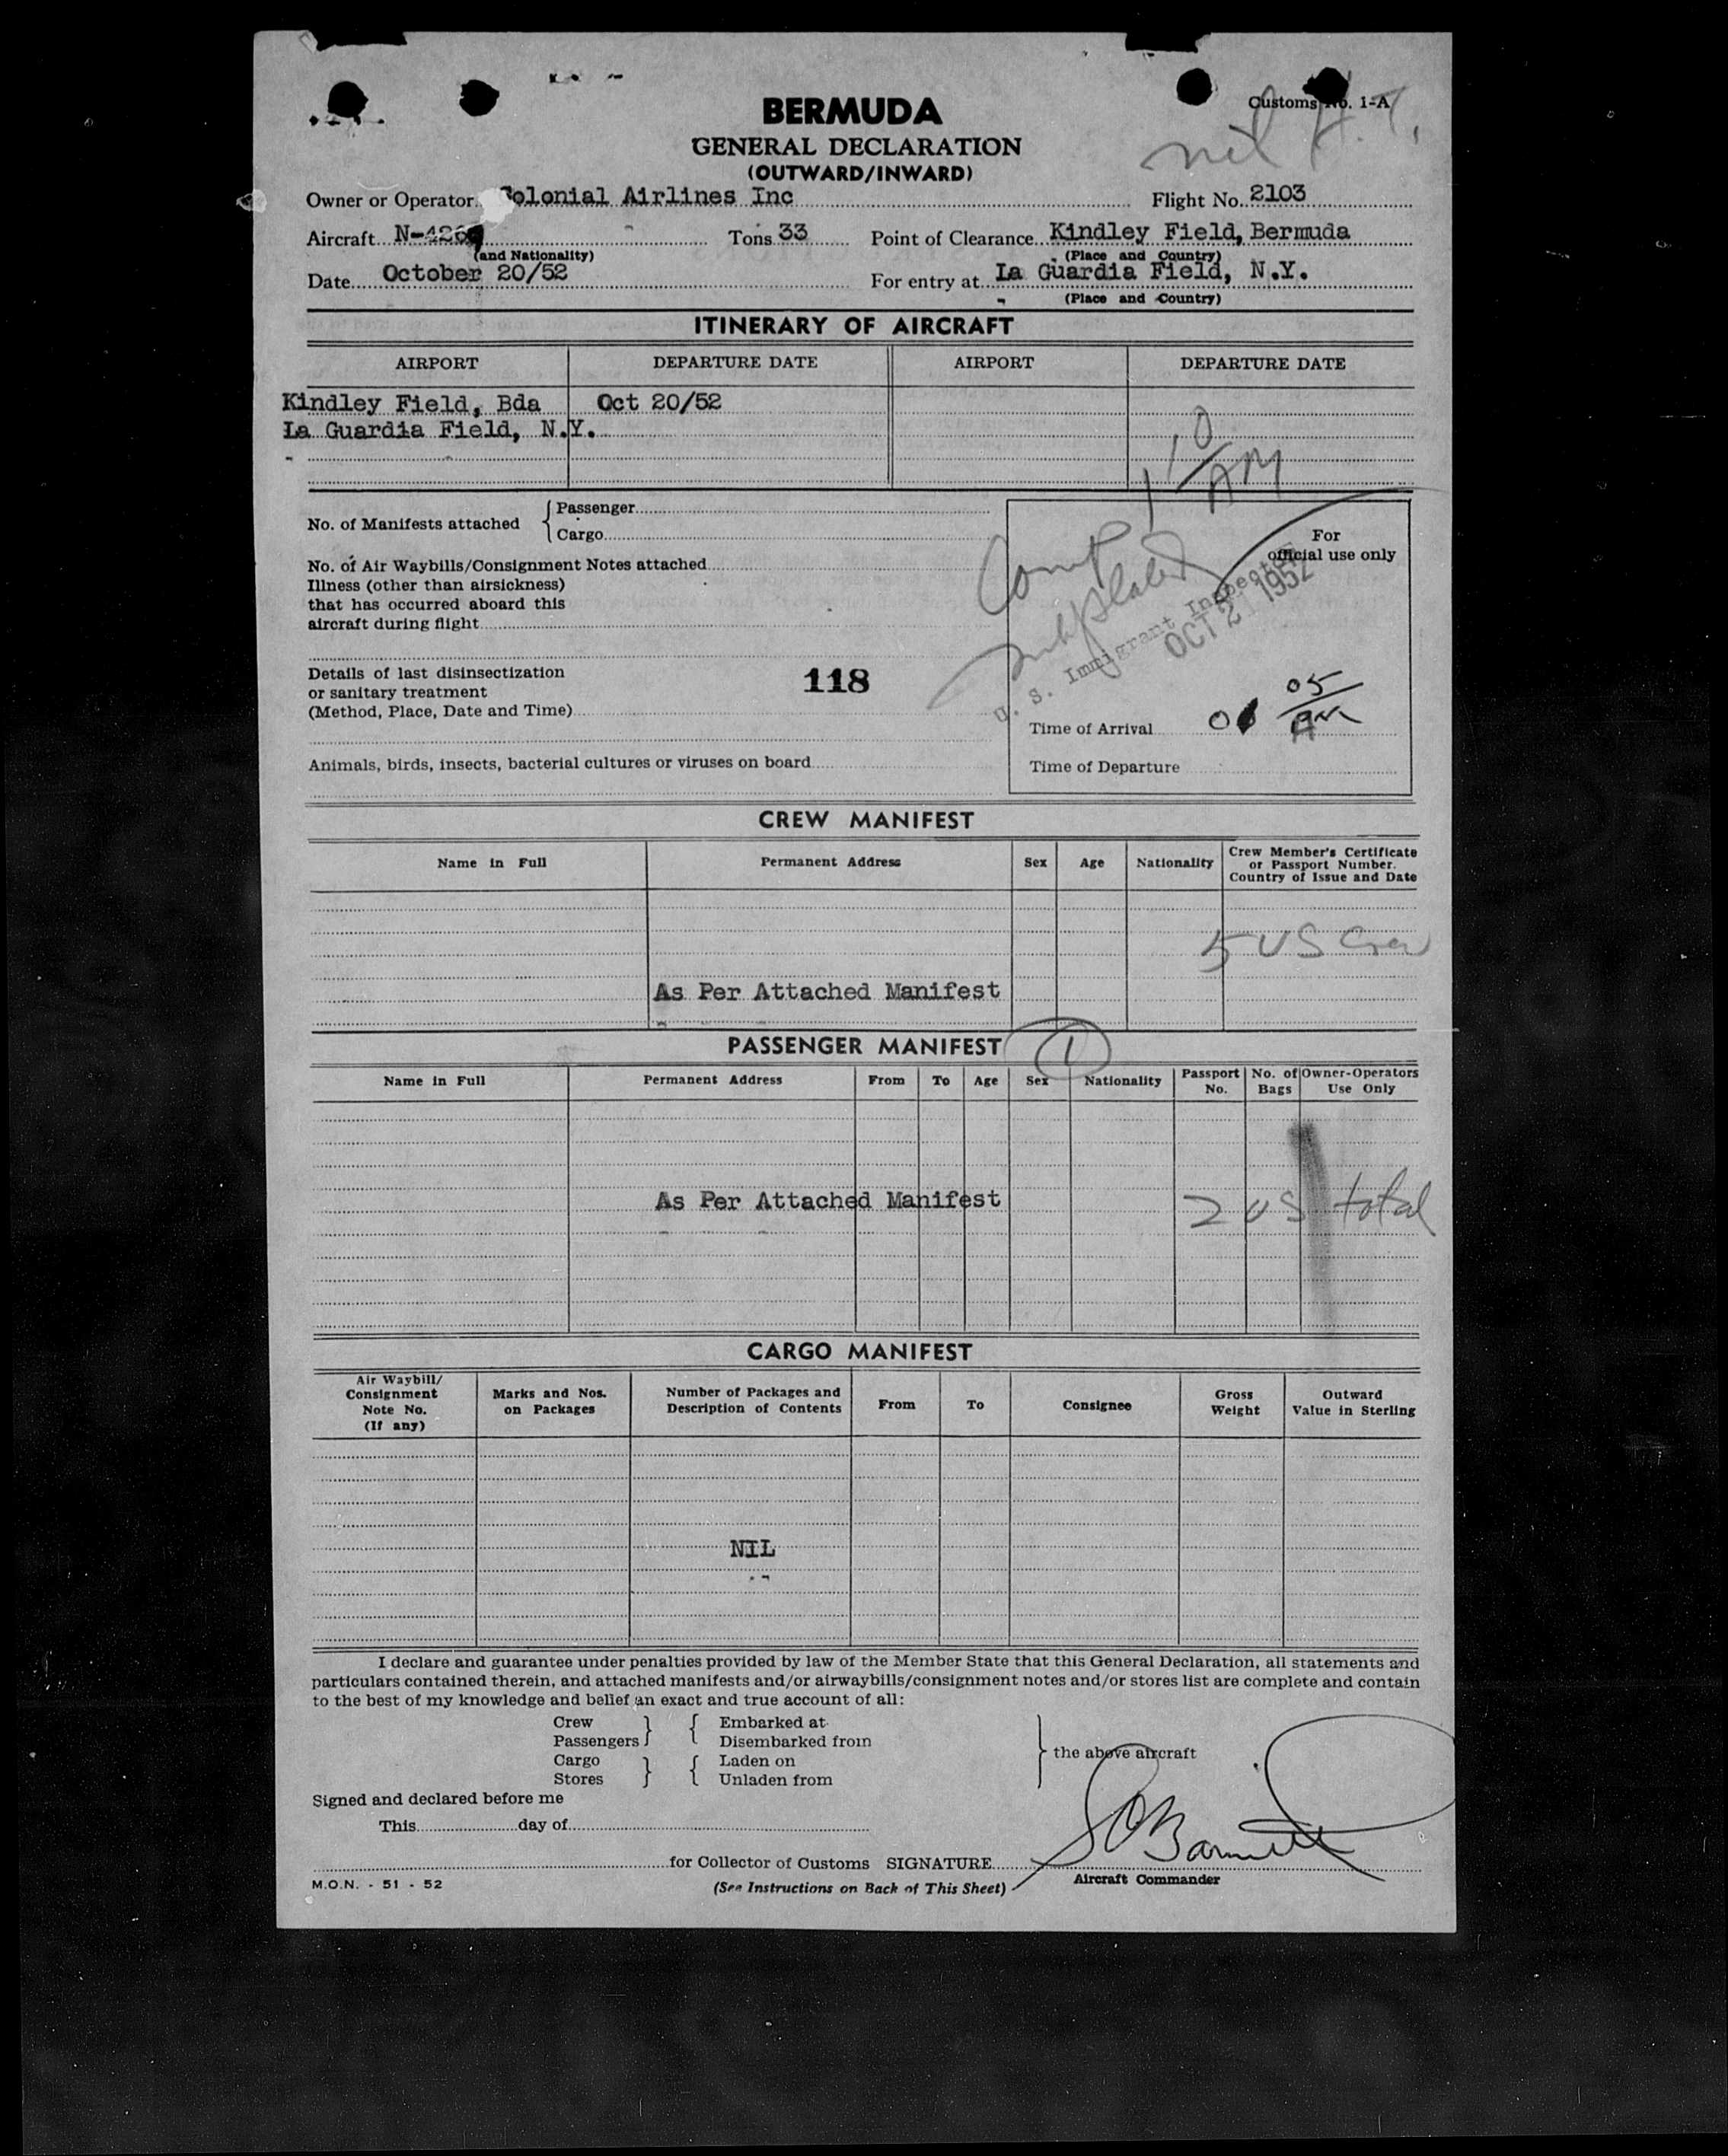 Customs No. 1-A
nil H.T.
BERMUDA
GENERAL DECLARATION
(OUTWARD/INWARD)
Owner or Operator Colonial Airlines Inc Flight No. 2103
Aircraft N-426 Tons 33 Point of Clearance Kindley Field, Bermuda
(and Nationality) (Place and Country)
Date October 20/52 For entry at La Guardia Field, N.Y.
(Place and Country)
ITINERARY OF AIRCRAFT
AIRPORT DEPARTURE DATE AIRPORT DEPARTURE DATE
Kindley Field, Bda Oct 20/52
La Guardia Field, N.Y.
1 10 AM
No. of Manifests attached { Passenger
Cargo
For
official use only
No. of Air Waybills/Consignment Notes attached
Illness (other than airsickness)
that has occurred aboard this
aircraft during flight
U. S. Immigrant Inspector
OCT 21 1952
Details of last disinsectization
or sanitary treatment
(Method, Place, Date and Time)
118
Time of Arrival 01 05 AM
Time of Departure
Animals, birds, insects, bacterial cultures or viruses on board
CREW MANIFEST
Name in Full Permanent Address Sex Age Nationality Crew Member's Certificate
or Passport Number.
Country of Issue and Date
5 US Crew
As Per Attached Manifest
PASSENGER MANIFEST 1
Name in Full Permanent Address From To Age Sex Nationality Passport No. No. of Bags Owner-Operators Use Only
As Per Attached Manifest 2 US total
CARGO MANIFEST
Air Waybill/
Consignment
Note No.
(If any)
Marks and Nos.
on Packages
Number of Packages and
Description of Contents
From To Consignee Gross Weight Outward Value in Sterling
NIL
I declare and guarantee under penalties provided by law of the Member State that this General Declaration, all statements and
particulars contained therein, and attached manifests and/or airwaybills/consignment notes and/or stores list are complete and contain
to the best of my knowledge and belief an exact and true account of all:
Crew } { Embarked at
Passengers } { Disembarked from
} the above aircraft
Cargo } { Laden on
Stores } { Unladen from
Signed and declared before me
This day of
for Collector of Customs SIGNATURE
Aircraft Commander
M.O.N. - 51 - 52 (See Instructions on Back of This Sheet)